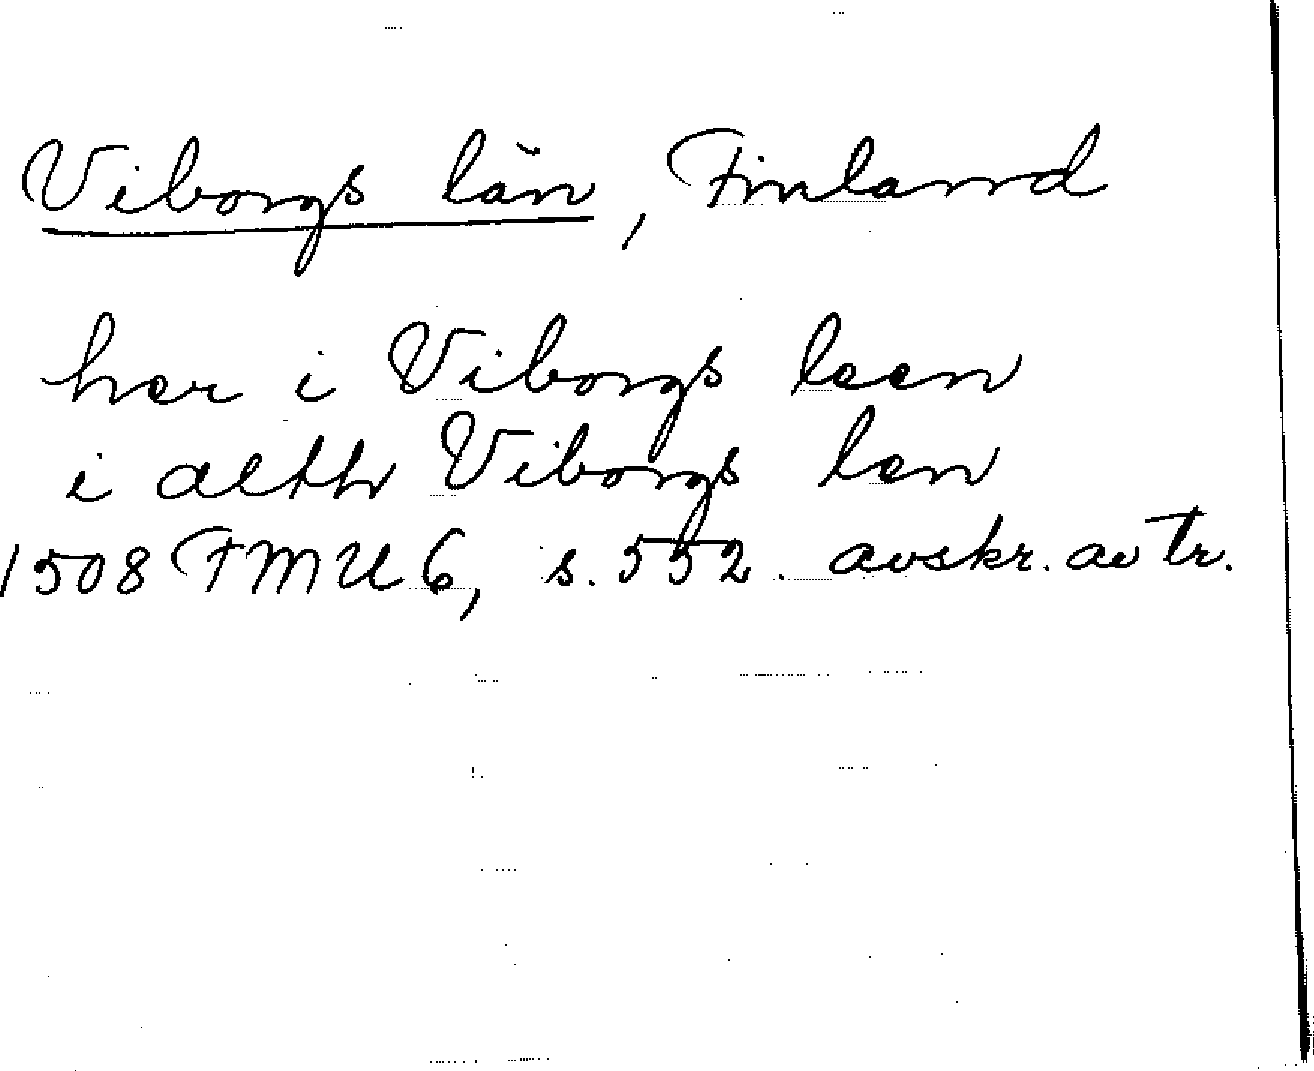 Viborgs län, Finland
her i Viborgs leen
i alth Viborgs len
1508 FMU 6, s. 552. avskr. av tr.